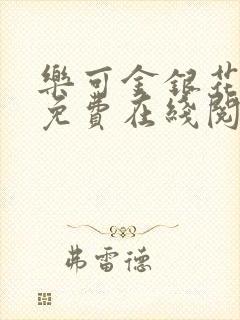 樂可金銀花
免費在綫閱
弗雷德